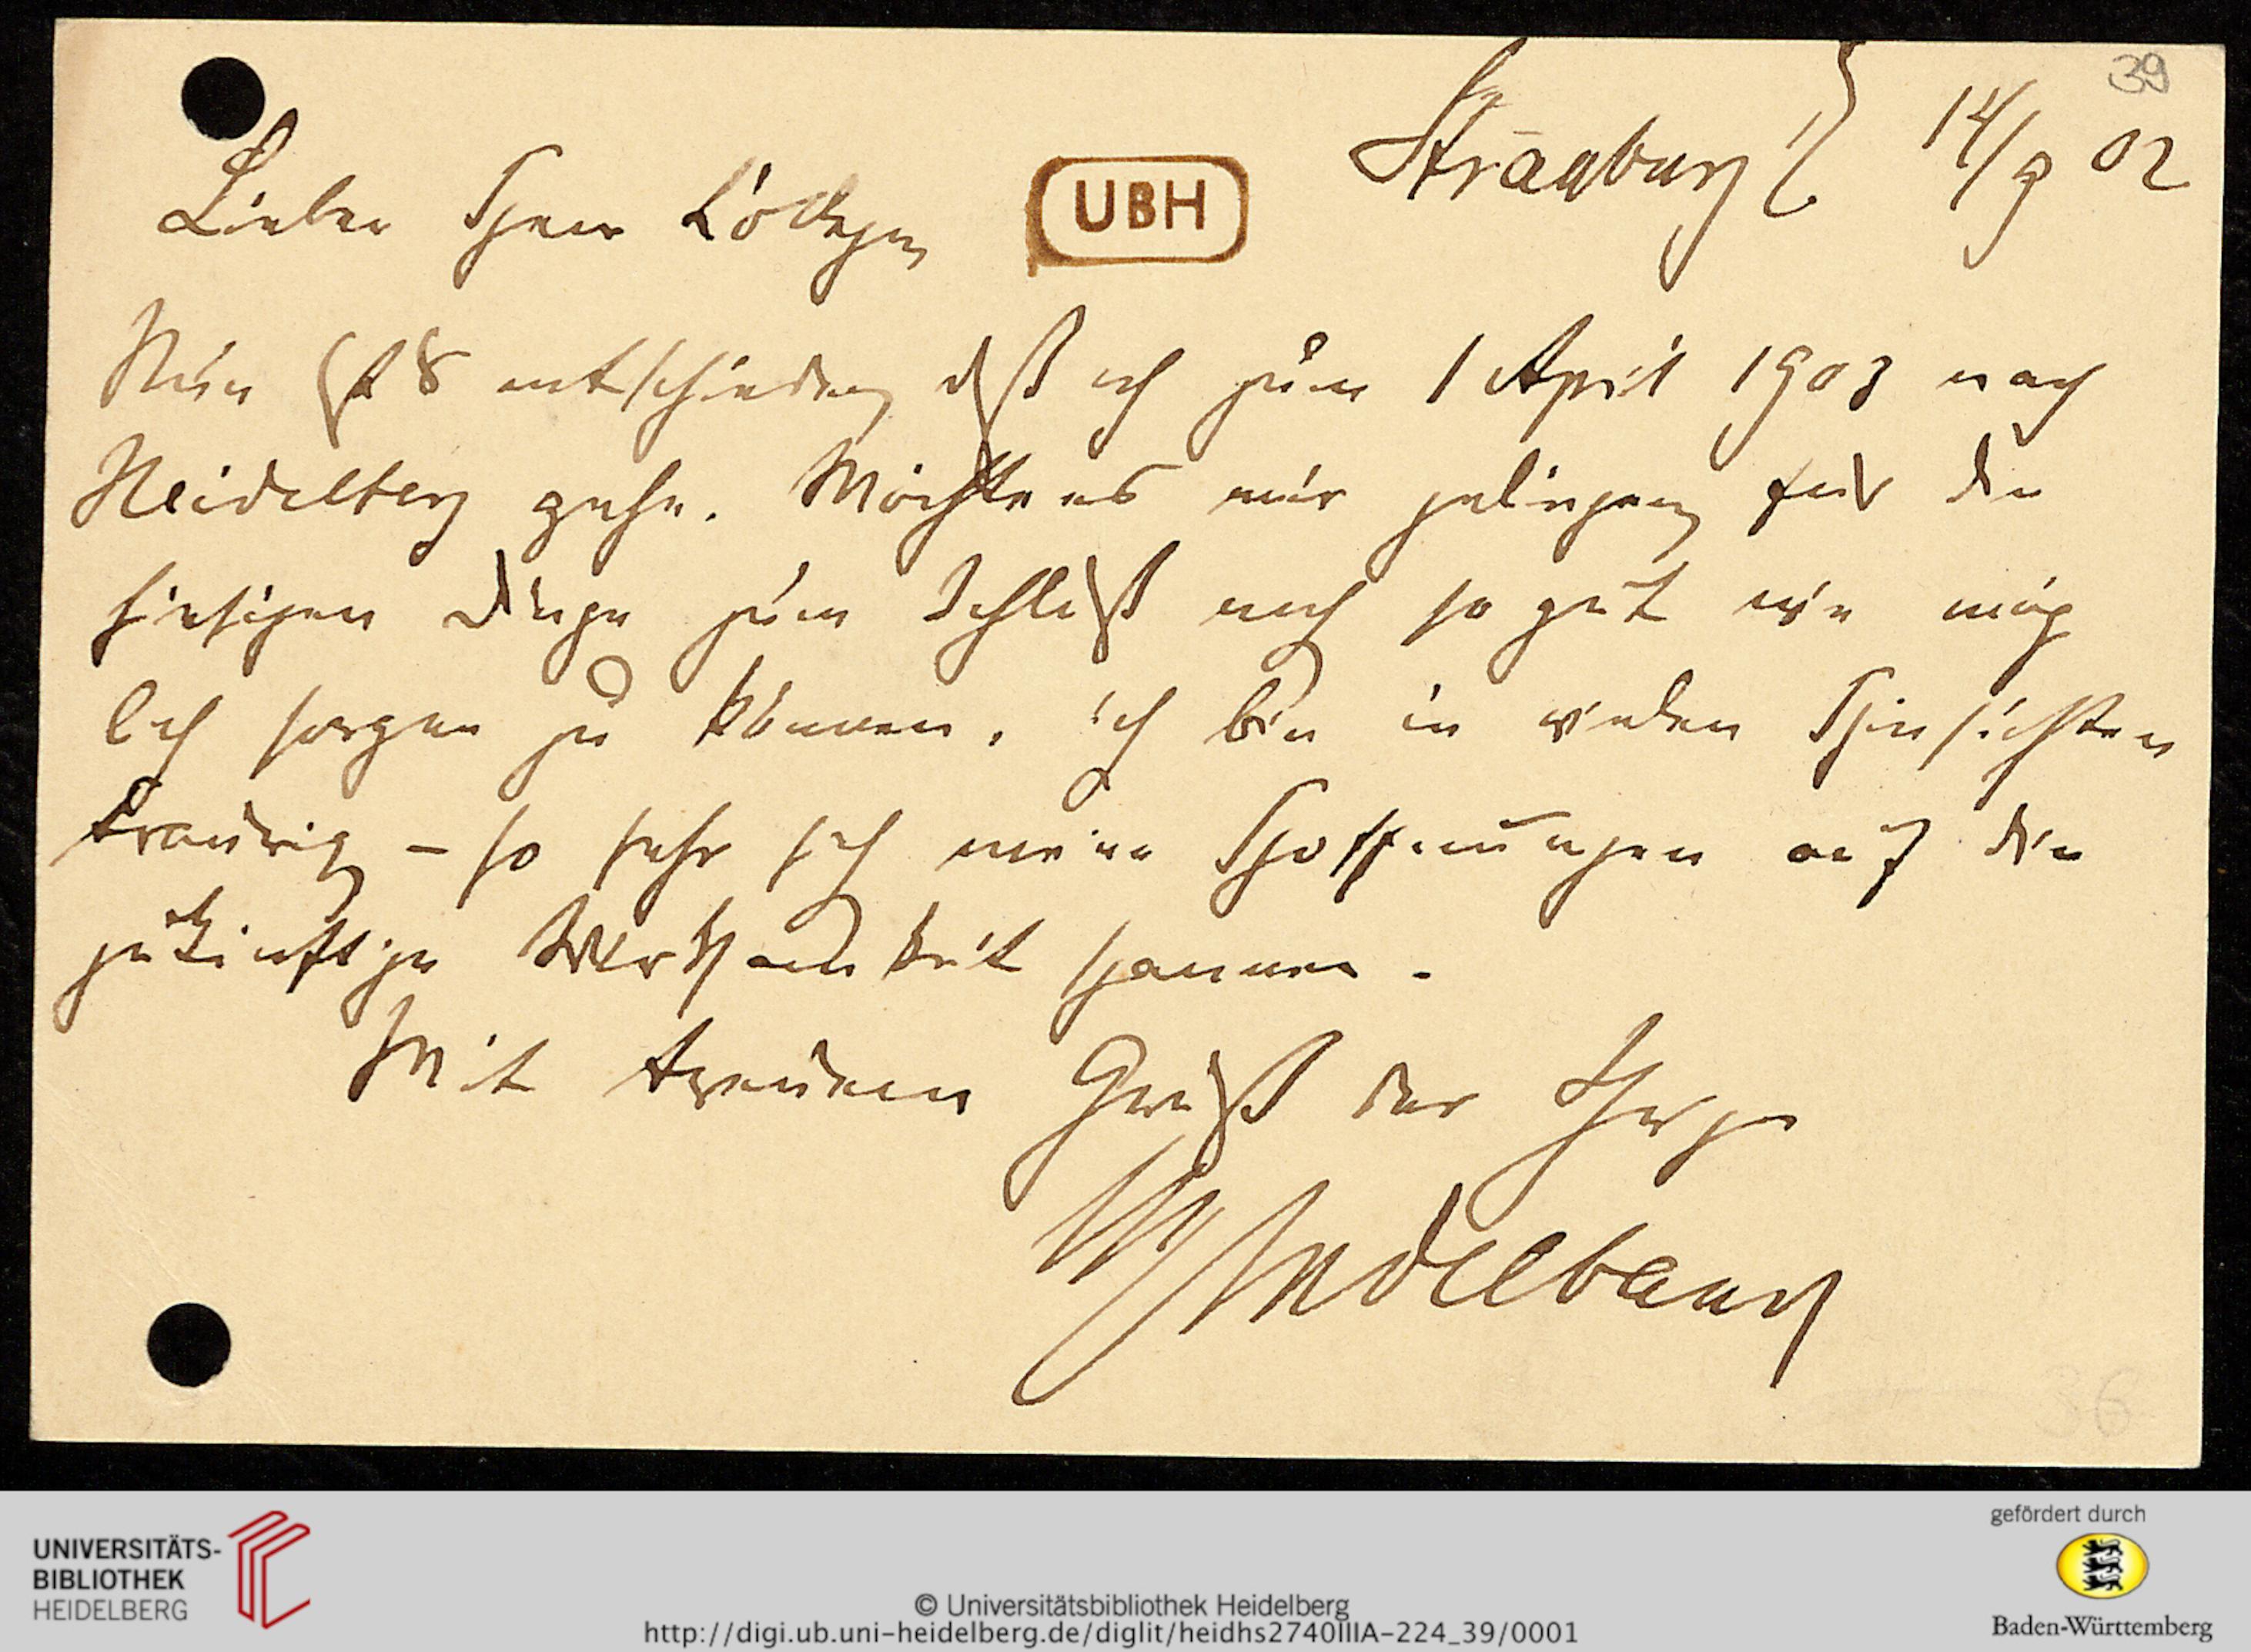 39
Straßburg 14/9 02
Lieber Herr College
UBH
Nun ist es entschieden daß ich zum 1 April 1903 nach
Heidelberg gehe. Möchte es mir gelingen für die
hiesigen Dinge zum Schluß noch so gut wie mög
lich sorgen zu können. ich bin in vielen Hinsichten
traurig – so sehr sich meine Hoffnungen auf die
zukünftige Wirksamkeit spannen.
Mit treuem Gruß der Ihrige
Windelband
36
UNIVERSITÄTS-
BIBLIOTHEK
HEIDELBERG
© Universitätsbibliothek Heidelberg
http://digi.ub.uni-heidelberg.de/diglit/heidhs2740IIIA-224_39/0001
gefördert durch
Baden-Württemberg